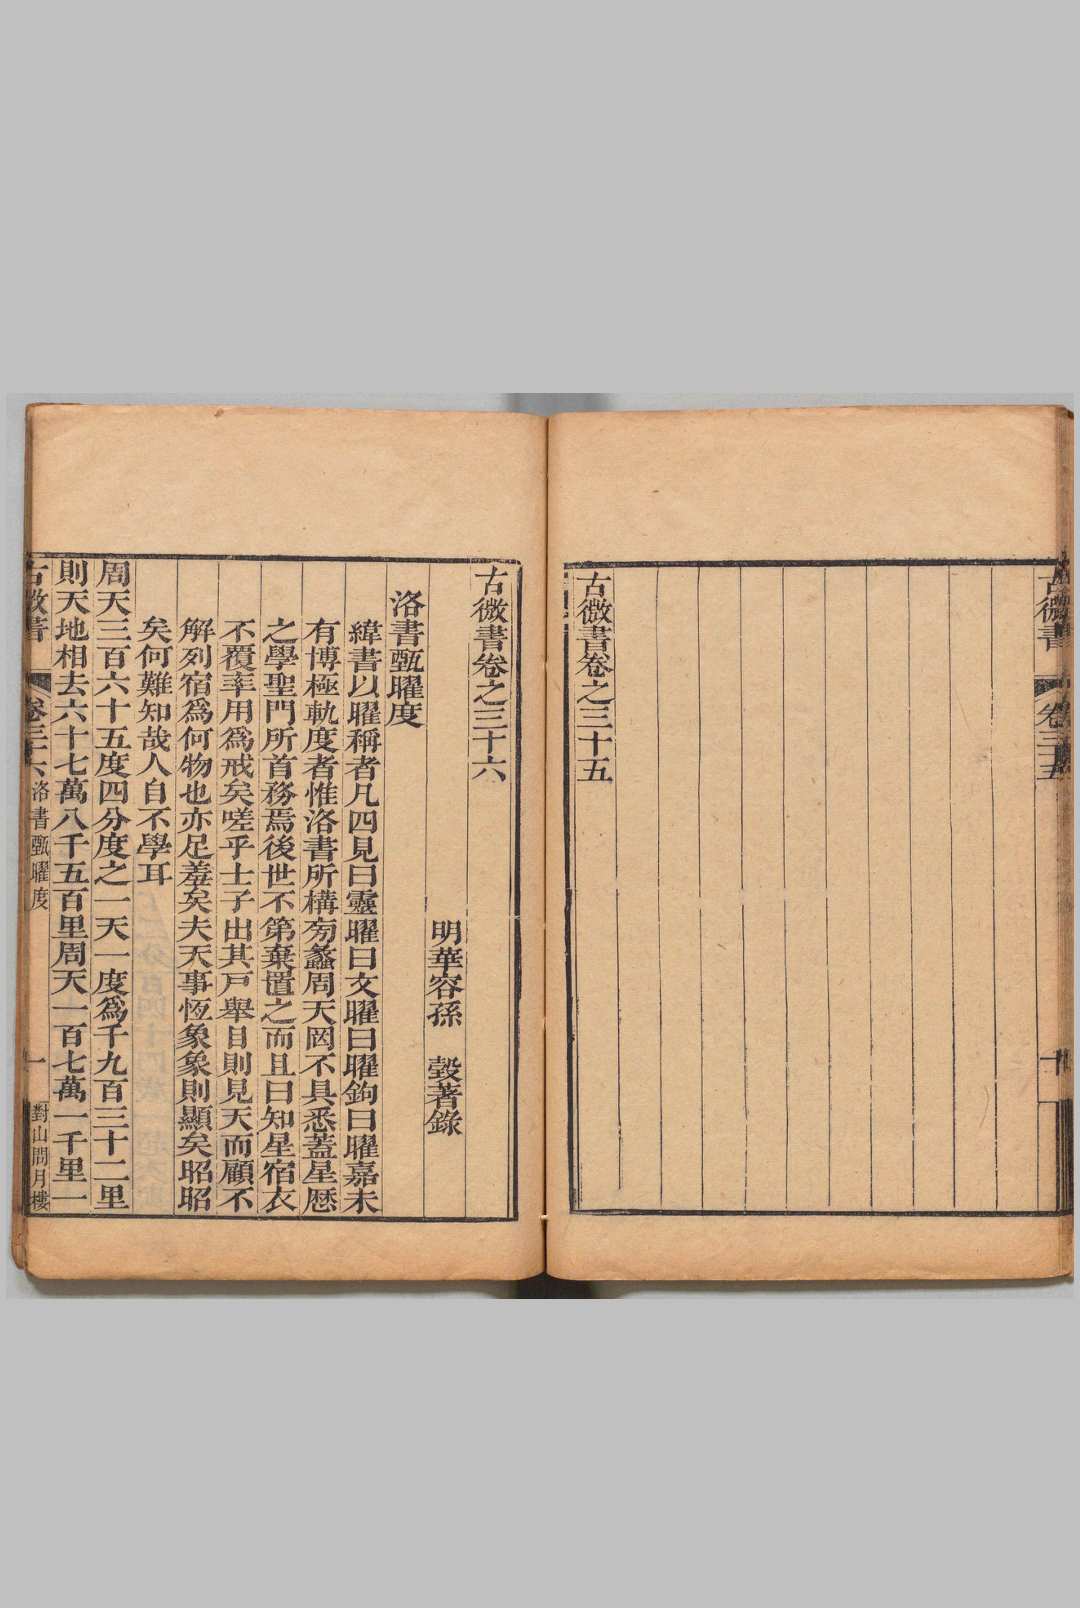 古微書
卷三十五
古微書卷之三十五
古微書卷之三十六
明華容孫　瑴著錄
洛書甄曜度
緯書以曜稱者凡四見曰靈曜曰文曜曰曜鉤曰曜嘉未
有博極軌度者惟洛書所構旁蠡周天罔不具悉蓋星曆
之學聖門所首務焉後世不第棄置之而且曰知星宿衣
不覆率用爲戒矣嗟乎士子出其戸舉目則見天而顧不
解列宿爲何物也亦足羞矣夫天事恆象象則顯矣昭昭
矣何難知哉人自不學耳
周天三百六十五度四分度之一天一度爲千九百三十二里
則天地相去六十七萬八千五百里周天一百七萬一千里一
古微書
卷三十六 洛書甄曜度
一
對山問月樓